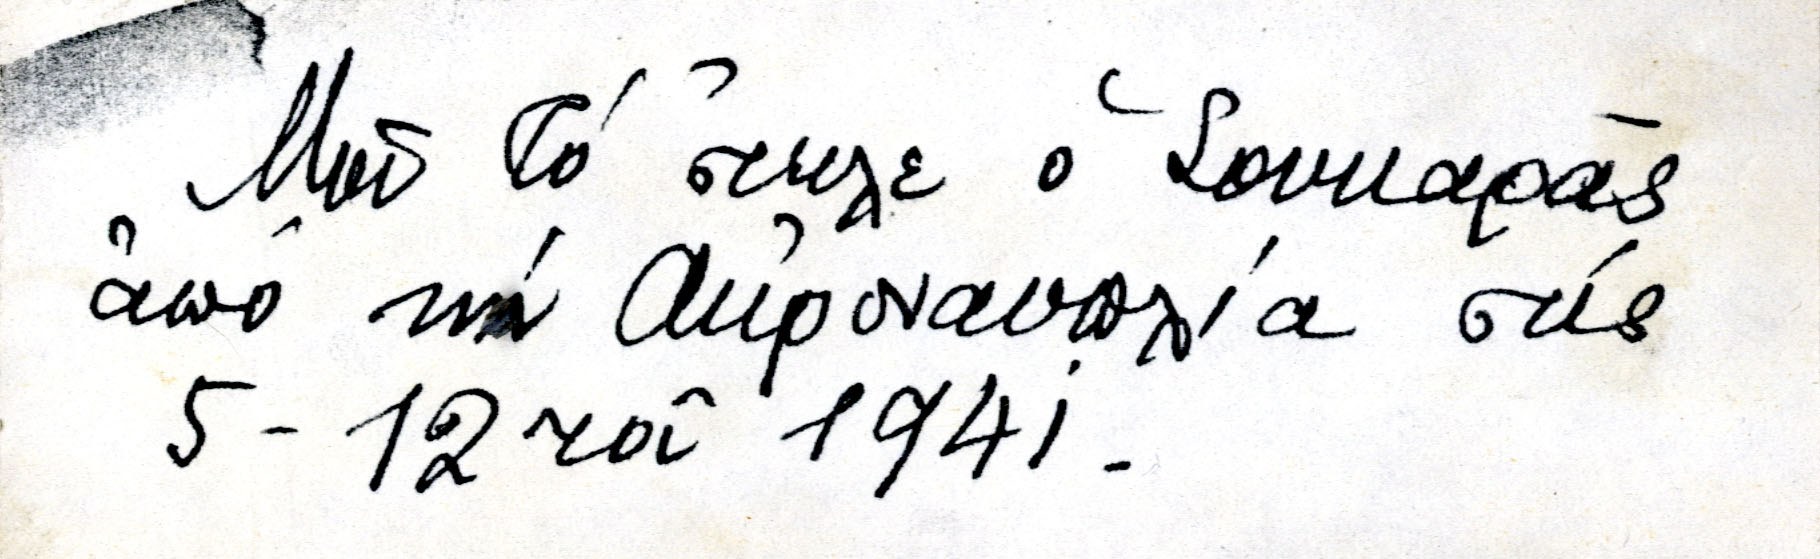 Μοῦ τό ἔστειλε ὁ Σουκαρᾶς
ἀπό τήν Ἀκροναυπλία στίς
5-12 τοῦ 1941.